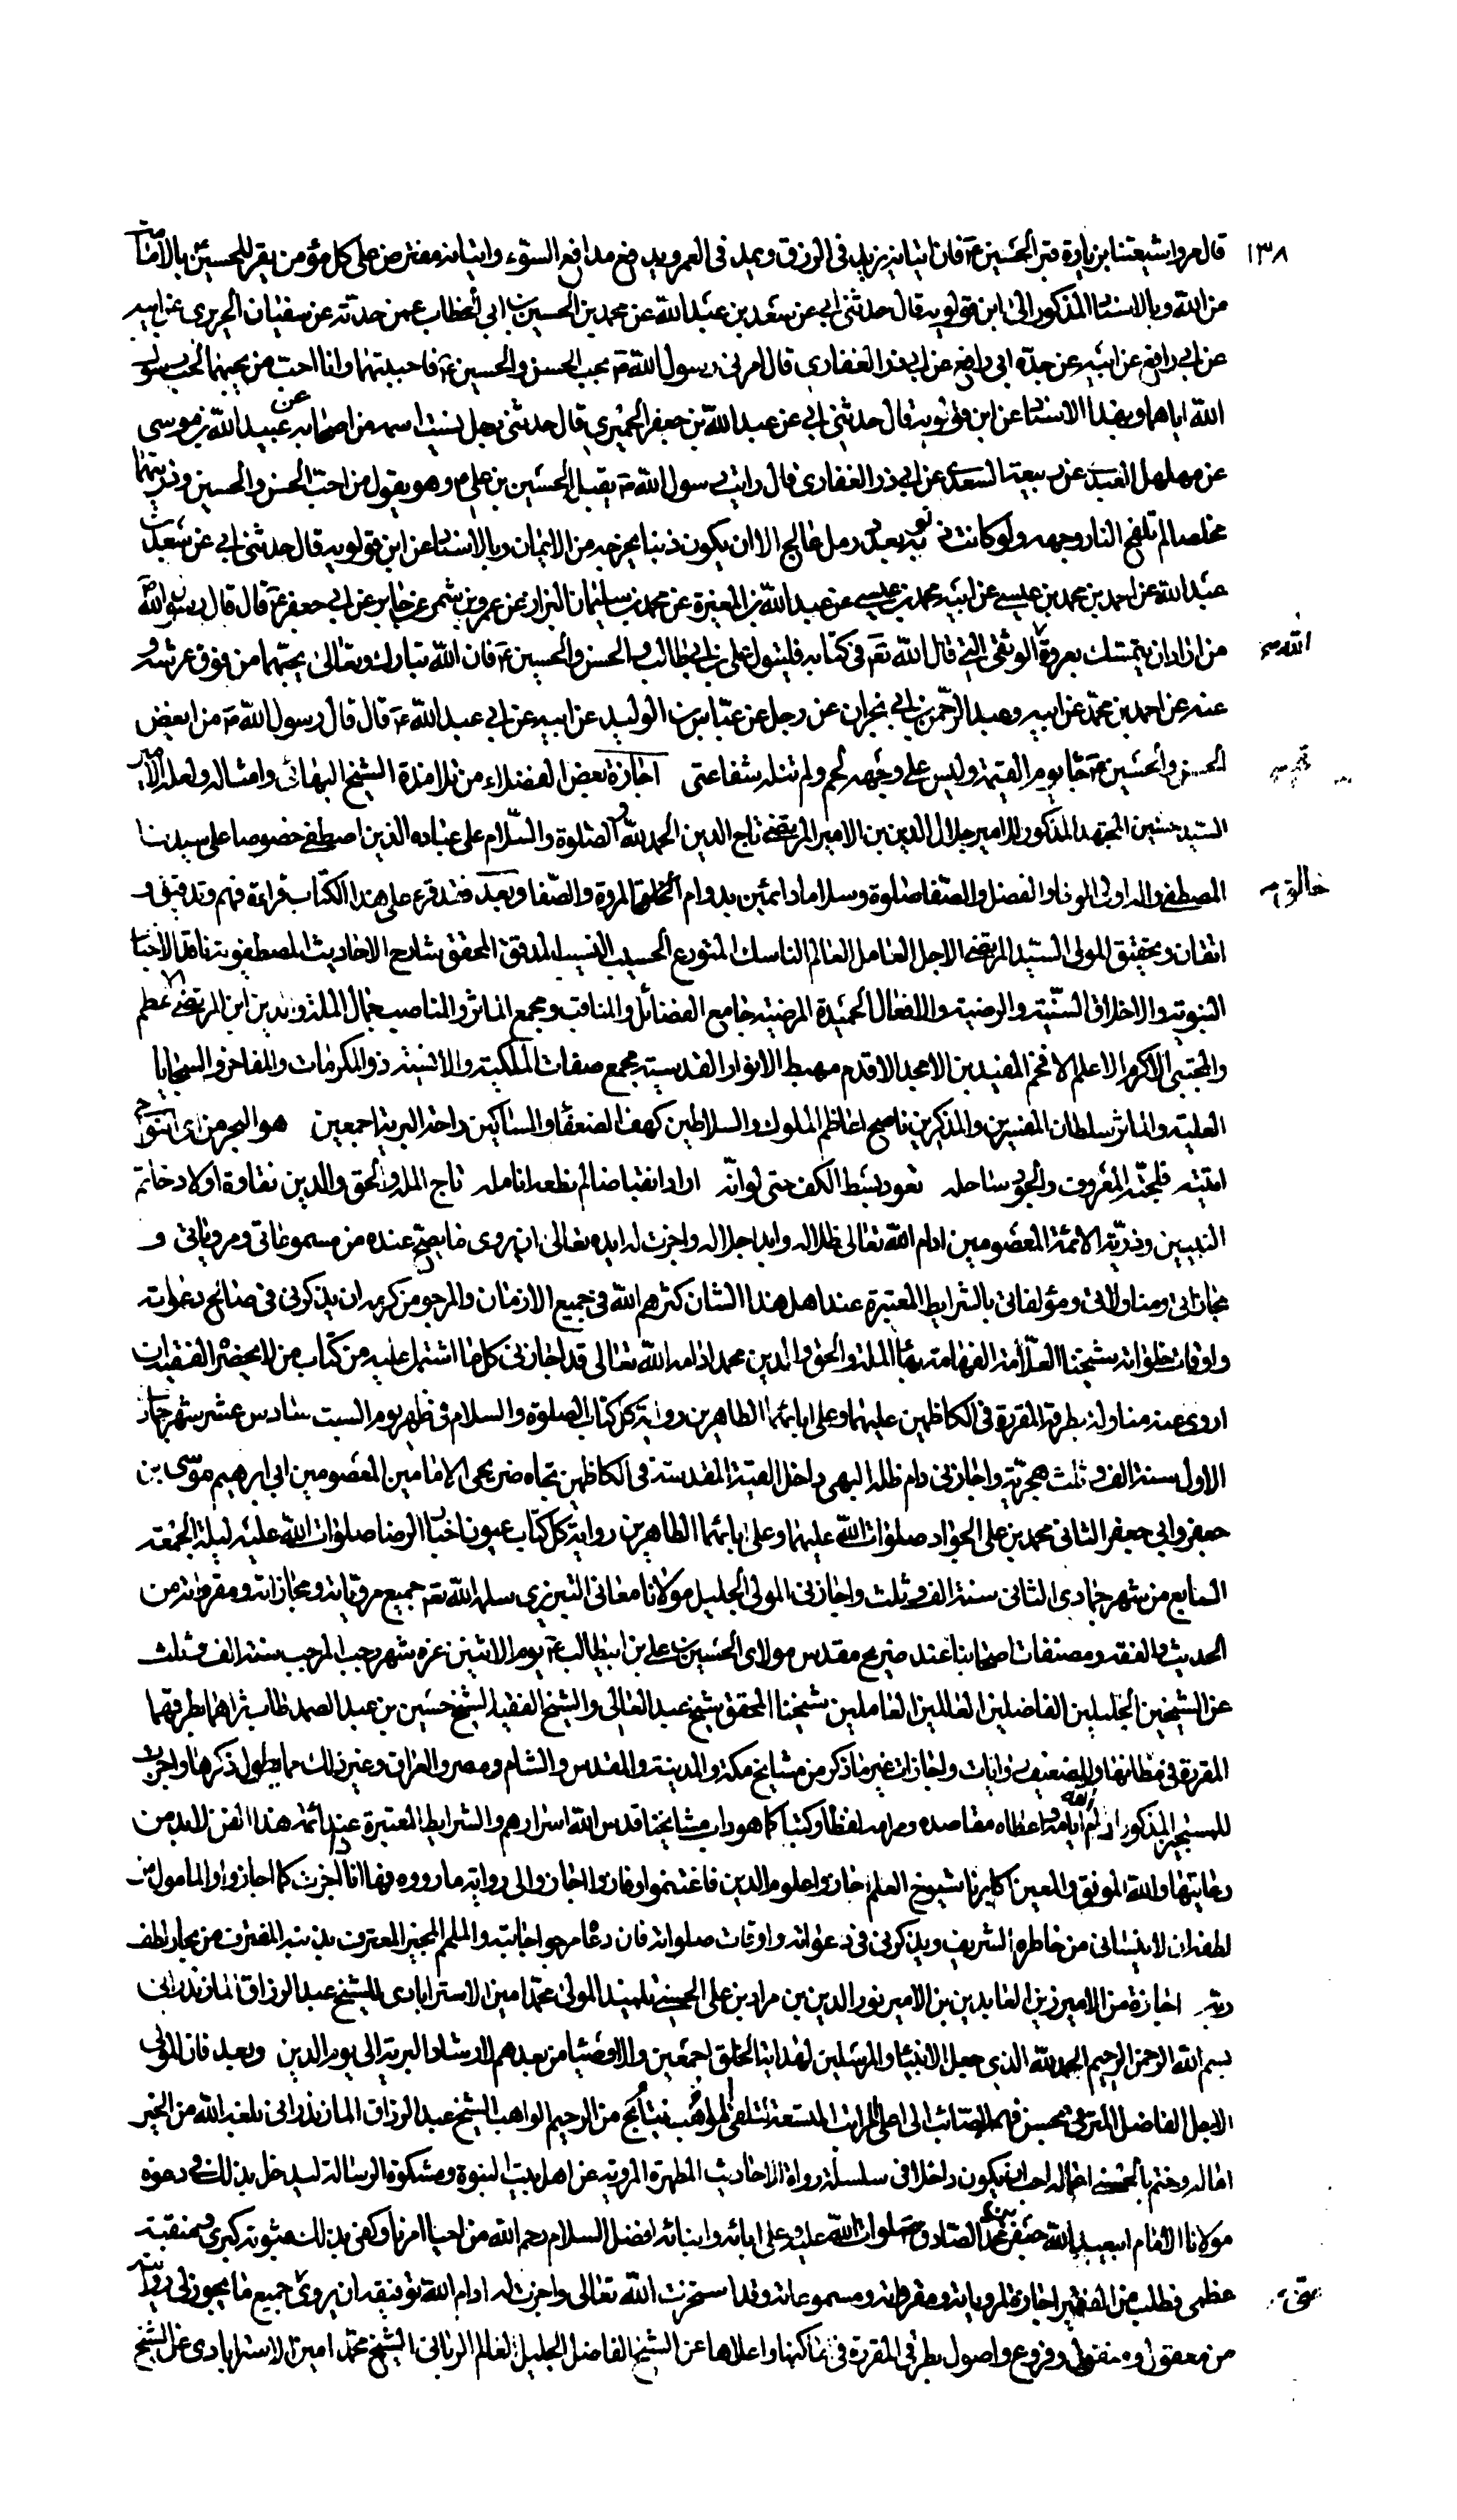 ١٣٨
قال مروا شيعتنا بزيارة قبر الحسين ع فان اتيانه يزيد فى الرزق ويمد فى العمر ويدفع مدافع السوء واتيانه مفترض على كل مؤمن يقر للحسين بالامامة
من الله وبالاسناد المذكور الى ابن قولويه قال حدثنى ابى عن سعد بن عبد الله عن محمد بن الحسين بن ابى الخطاب عمن حدثه عن سفيان الجريرى عن ابيه
عن ابى رافع عن ابيه عن جده ابى رافع عن ابى ذر الغفارى قال امرنى رسول الله ص بحب الحسن والحسين ع فاحببتهما وانا احب من يحبهما لحب رسول
الله اياهما وبهذا الاسناد عن ابن قولويه قال حدثنى ابى عن عبد الله بن جعفر الحميرى قال حدثنى رجل نسيت اسمه من اصحابه عن عبيد الله بن موسى
عن مهلهل العبدى عن ربيعة السعدى عن ابى ذر الغفارى قال رايت رسول الله ص يقبل الحسين بن على ع وهو يقول من احب الحسن والحسين وذريتهما
مخلصا لم تلفح النار وجهه ولو كانت ذنوبه بعدد رمل عالج الا ان يكون ذنبا يخرجه من الايمان وبالاسناد عن ابن قولويه قال حدثنى ابى عن سعد بن
عبد الله عن احمد بن محمد بن عيسى عن ابيه محمد بن عيسى عن عبد الله بن المغيرة عن محمد بن سليمان البزاز عن عمرو بن شمر عن جابر عن ابى جعفر ع قال قال رسول الله ص
من اراد ان يتمسك بعروة الوثقى التى قال الله تع فى كتابه فليتول على بن ابى طالب والحسن والحسين ع فان الله تبارك وتعالى يحبهما من فوق عرشه و
عنه عن احمد بن محمد عن ابيه وعبد الرحمن بن ابى نجران عن رجل عن عباس بن الوليد عن ابيه عن ابى عبد الله ع قال قال رسول الله ص من ابغض
الحسن والحسين ع جاء يوم القيمة وليس على وجهه لحم ولم تنله شفاعتى اجازة بعض الفضلاء من تلامذة الشيخ البهائى وامثاله ولعله الامير
السيد حسين المجتهد المذكور للامير جلال الدين بن الامير المرتضى تاج الدين الحمد لله والصلوة والسلام على عباده الذين اصطفى خصوصا على سيدنا
المصطفى واله اولى الوفا والفضل والصفا صلوة وسلاما دائمين بدوام الخلق المروة والصفا وبعد فقد قرء على هذا الكتاب قراءة فهم وتدقيق و
اتقان وتحقيق المولى السيد المرتضى الاجل العامل العالم الناسك المتورع الحسيب النسيب المدقق المحقق شارح الاحاديث المصطفوية ناقد الاخبار
النبوية والاخلاق السنية والرضية والافعال الحميدة المرضية جامع الفضائل والمناقب ومجمع الماثر والمناصب جمال الملة والدين ابن المرتضى الاعظم
والمجتبى الاكرم الاعلم الافخم المفيد بن الامجد الاقدم مهبط الانوار القدسية مجمع صفات الملكية والانسية ذو المكرمات والمفاخر والسجايا
العلية والماثر سلطان المفسرين والمذكرين ناصح اعاظم الملوك والسلاطين كهف الضعفاء والمساكين واحد البرية اجمعين هو البحر من اى النواحى
اتيته فلجته المعروف والجود ساحله تعود بسط الكف حتى لو انه اراد انقباضا لم تطعه انامله تاج الملة والحق والدين نقاوة اولاد خاتم
النبيين وذرية الائمة المعصومين ادام الله تعالى ظلاله وابد اجلاله واجزت له ايده تعالى ان يروى ما يصح عنده من مسموعاتى ومروياتى و
مجازاتى ومناولاتى ومؤلفاتى بالشرايط المعتبرة عند اهل هذا الشان كثرهم الله فى جميع الازمان والمرجو من كرمه ان يذكرنى فى صالح دعواته
واوقات خلواته شيخنا العلامة الفهامة بهاء الملة والحق والدين محمد ادامه الله تعالى قد اجازنى كل ما اشتمل عليه من كتاب من لا يحضره الفقيه ان
اروى عنه مناولة بطرقه المقررة فى الكاظمين عليهما وعلى ابائهما الطاهرين رواية كل كتاب الصلوة والسلام فى ظهر يوم السبت سادس عشر شهر جمادى
الاول سنة الف وثلث هجرية واجازنى دام ظله البهى داخل القبة المقدسة فى الكاظمين تجاه ضريحى الامامين المعصومين ابى ابرهيم موسى بن
جعفر وابى جعفر الثانى محمد بن على الجواد صلوات الله عليهما وعلى ابائهما الطاهرين رواية كل كتاب عيون اخبار الرضا صلوات الله عليه ليلة الجمعة
السابع من شهر جمادى الثانى سنة الف وثلث واجازنى المولى الجليل مولانا معانى التبريزى سلمه الله تع جميع مروياته ومجازاته ومقرواته من
الحديث والفقه ومصنفات اصحابنا عند ضريح مقدس مولاى الحسين بن على بن ابيطالب ع يوم الاثنين غره شهر رجب المرجب سنة الف وثلث
عن الشيخين الجليلين الفاضلين العالمين العاملين شيخنا المحقق شيخ عبد العالى والشيخ الفقيه الشيخ حسين بن عبد الصمد طاب ثراهما بطرقهما
المقررة فى مظانها وللضعيف روايات واجازات غير ما ذكر من مشايخ مكة والمدينة والمقدس والشام ومصر والعراق وغير ذلك مما يطول ذكرها واجزت
للمستجيز المذكور ادام الله ايامه واعطاه مقاصده ومرامه لفظا وكتبا كما هو داب مشايخنا قدس الله اسرارهم والشرايط المعتبرة عند ائمة هذا الفن لابد من
رعايتها والله الموفق والمعين اكابرنا شيوخ العلم حازوا علوم الدين فاغتنموا وفازوا اجازوا لى رواية ما رووه فها انا اجزت كما اجازوا والمامول من
لطفه ان لا ينسانى من خاطره الشريف ويذكرنى فى دعواته واوقات صلواته فان دعاه مرجو اجابته والملهم المجيز المعترف بذنبه المغترف من بحار لطف
ربه اجازة من الامير زين العابدين بن الامير نور الدين بن مراد بن على الحسينى تلميذ المولى محمد امين الاسترابادى للشيخ عبد الرزاق المازندرانى
بسم الله الرحمن الرحيم الحمد لله الذى جعل الانبياء والمرسلين لهداية الخلق اجمعين والاوصياء من بعدهم لارشاد البرية الى يوم الدين وبعد فان المولى
الاجل الفاضل المترقى بحسن فهمه الصائب الى اعلى المراتب المستعد لتلقى المواهب نتائج من الرحيم الواهب الشيخ عبد الرزاق المازندرانى بلغه الله من الخير
اماله وختم بالحسنى اعماله احب ان يكون داخلا فى سلسلة رواة الاحاديث المطهرة المروية عن اهل بيت النبوة ومشكوة الرسالة ليدخل بذلك فى دعوه
مولانا الامام ابيعبد الله جعفر بن محمد الصادق صلوات الله عليه وعلى ابائه وابنائه افضل السلام رحم الله من احيا امرنا وكفى بذلك مثوبة كبرى ومنقبة
عظمى فطلب من الفقير اجازة لمروياته ومقرواته ومسموعاته وقد استخرت الله تعالى واجزت له ادام الله توفيقه ان يروى جميع ما يجوز لى روايته
من معقول ومنقول وفروع واصول بطرقى المقررة فى اماكنها واعلاها عن الشيخ الفاضل الجليل العالم الربانى الشيخ محمد امين الاسترابادى عن الشيخ